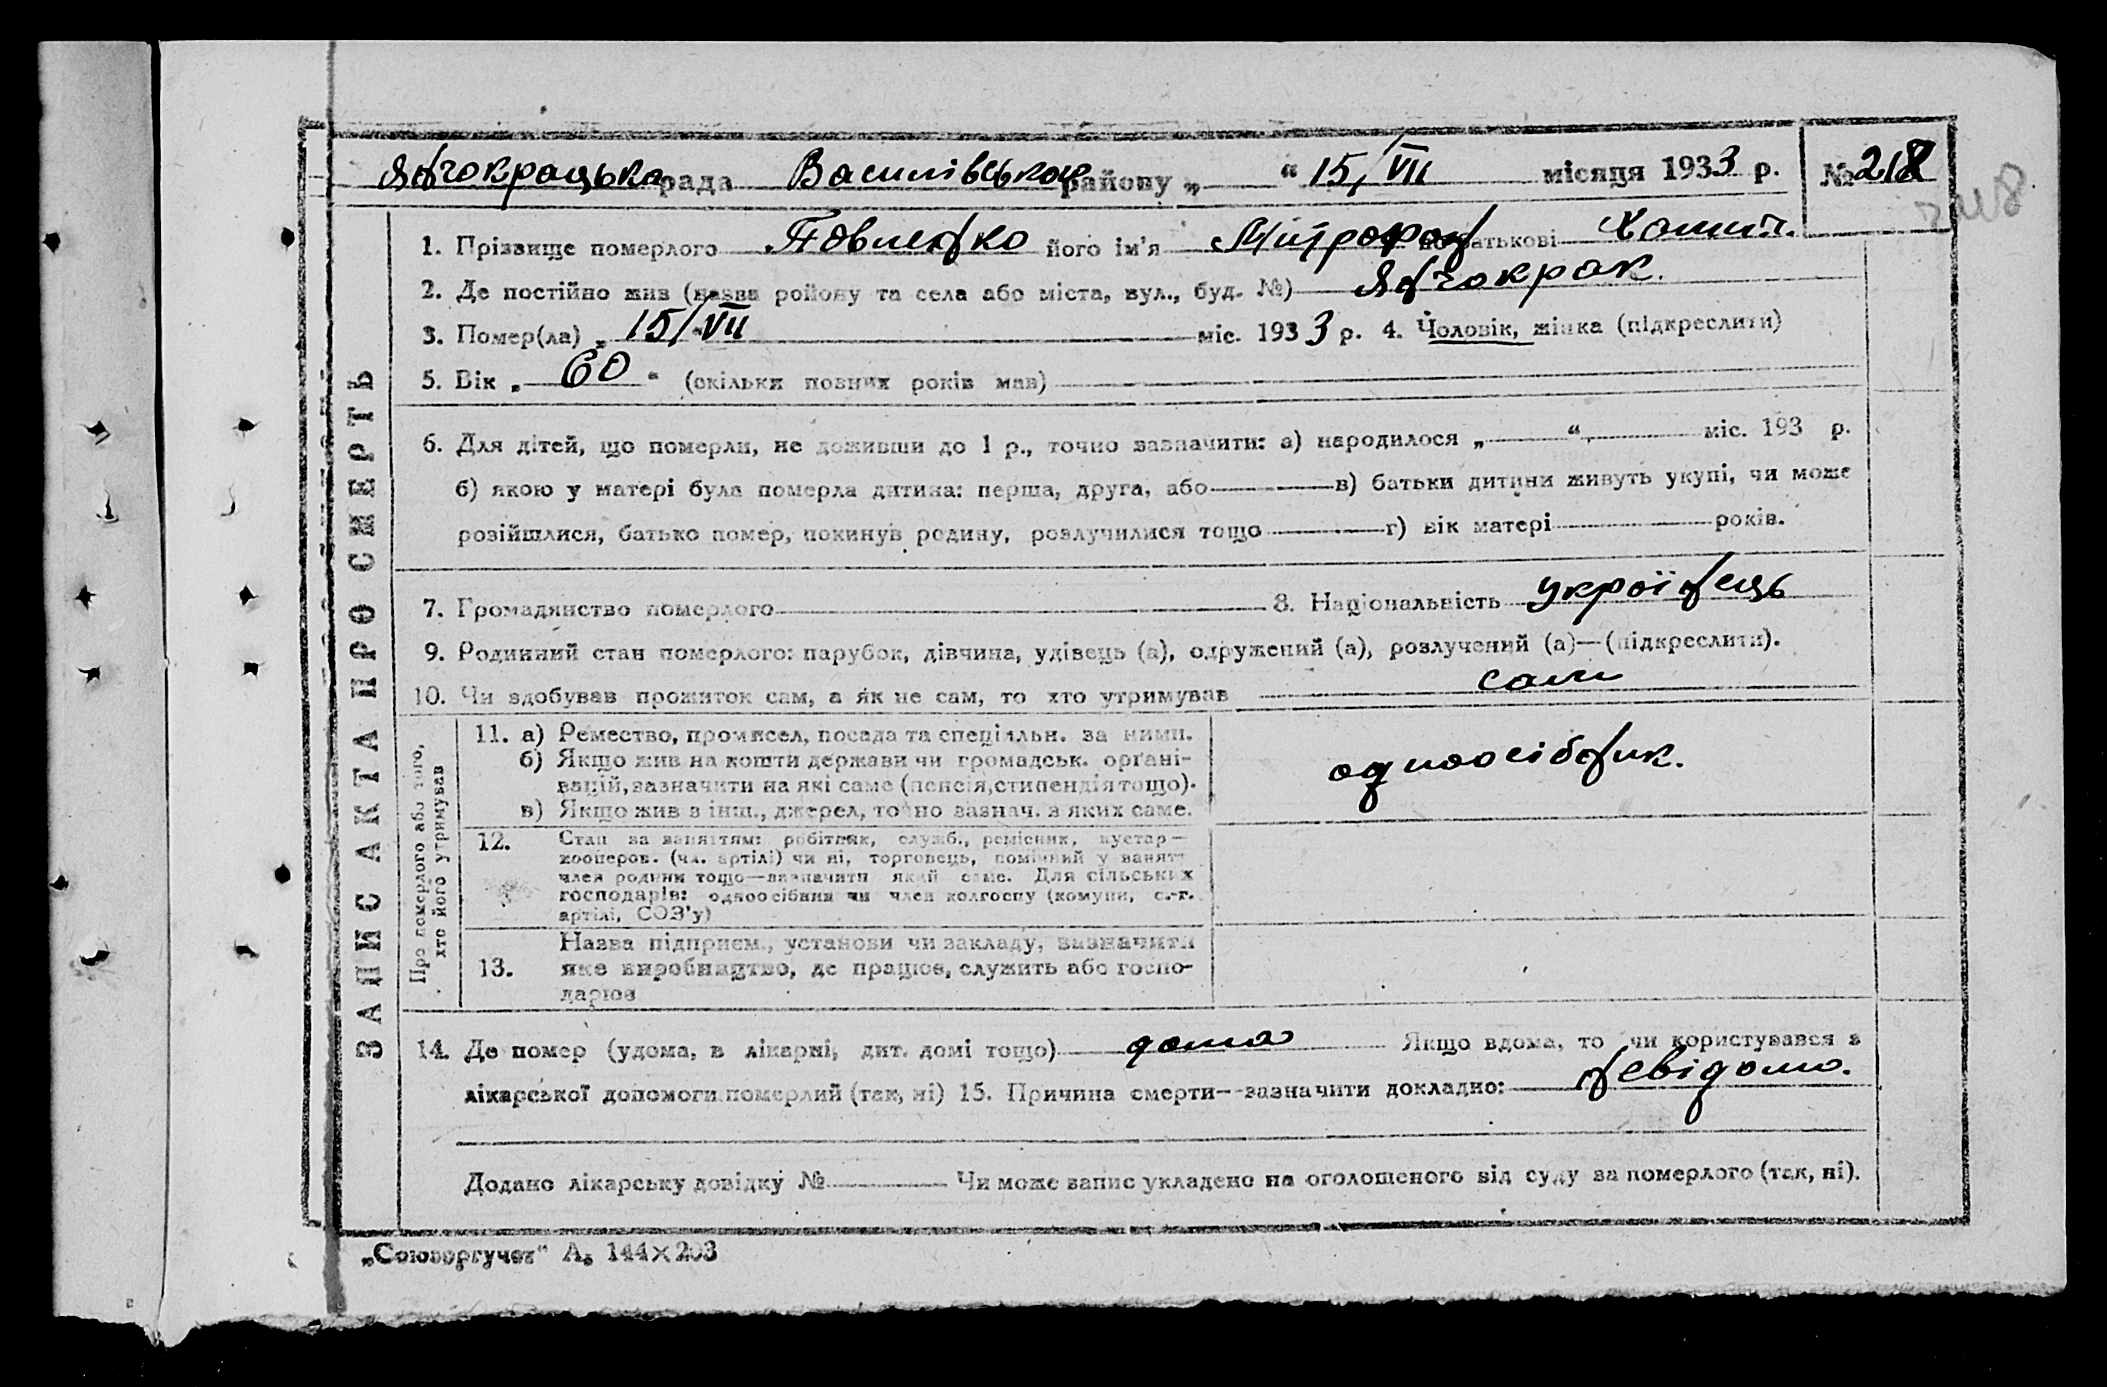 Янчокрацька рада Василівського району „ “ 15/VII місяця 1933 р. № 218
1. Прізвище померлого Павленко його ім'я Митрофан по батькові Хомич.
2. Де постійно жив (назва району та села або міста, вул., буд. №) Янчокрак.
3. Помер(ла) „ 15/VII міс. 1933 р. 4. Чоловік, жінка (підкреслити)
5. Вік „ 60 “ (скільки повних років мав)
6. Для дітей, що померли, не доживши до 1 р., точно зазначити: а) народилося „ “ міс. 193 р.
б) якою у матері була померла дитина: перша, друга, або в) батьки дитини живуть укупі, чи може
розійшлися, батько помер, покинув родину, розлучилися тощо г) вік матері років.
7. Громадянство померлого 8. Національність українець
9. Родинний стан померлого: парубок, дівчина, удівець (а), одружений (а), розлучений (а)—(підкреслити).
10. Чи здобував прожиток сам, а як не сам, то хто утримував сам
ЗАПИС АКТА ПРО СМЕРТЬ
Про померлого або того,
хто його утримував
11. а) Ремество, промисел, посада та спеціяльн. за ними.
б) Якщо жив на кошти держави чи громадськ. органі-
зацій, зазначити на які саме (пенсія, стипендія тощо).
в) Якщо жив з інш., джерел, точно зазнач. з яких саме.
одноосібник.
12. Стан за заняттям: робітник, служб., ремісник, кустар—
кооперов. (чл. артілі) чи ні, торговець, помічний у занятт
член родини тощо—зазначити який саме. Для сільських
господарів: одноосібний чи член колгоспу (комуни, с.-г.
артілі, СОЗ'у)
Назва підприєм., установи чи закладу, визначити
13. яке виробництво, де працює, служить або госпо-
дарює
14. Де помер (удома, в лікарні, дит. домі тощо) дома Якщо вдома, то чи користувався з
лікарської допомоги померлий (так, ні) 15. Причина смерти—зазначити докладно: невідомо.
Додано лікарську довідку № Чи може запис укладено на оголошеного від суду за померлого (так, ні).
„Союзоргучет“ А₅ 144×203